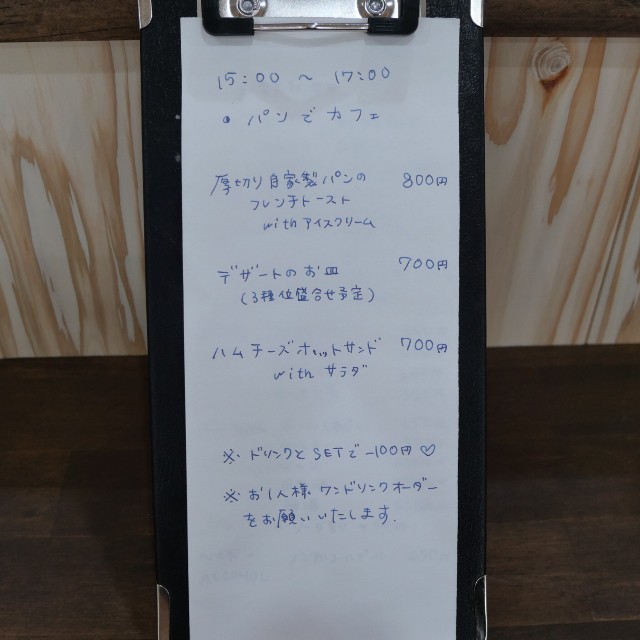 15:00 ~ 17:00
• パンでカフェ
厚切り自家製パンの 800円
フレンチトースト
with アイスクリーム
デザートのお皿 700円
(3種位盛合せ予定)
ハムチーズホットサンド 700円
with サラダ
※ ドリンクとSETで-100円♡
※ お1人様ワンドリンクオーダー
をお願いいたします.